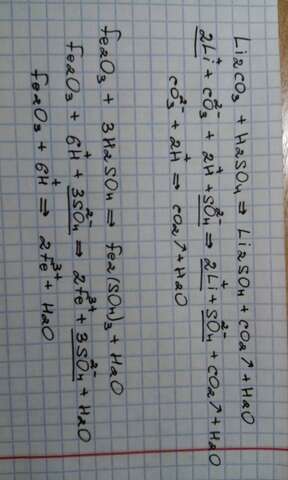 Li2CO3 + H2SO4 ⇒ Li2SO4 + CO2↑ + H2O
2Li⁺ + CO3²⁻ + 2H⁺ + SO4²⁻ ⇒ 2Li⁺ + SO4²⁻ + CO2↑ + H2O
CO3²⁻ + 2H⁺ ⇒ CO2↑ + H2O
Fe2O3 + 3H2SO4 ⇒ Fe2(SO4)3 + H2O
Fe2O3 + 6H⁺ + 3SO4²⁻ ⇒ 2Fe³⁺ + 3SO4²⁻ + H2O
Fe2O3 + 6H⁺ ⇒ 2Fe³⁺ + H2O